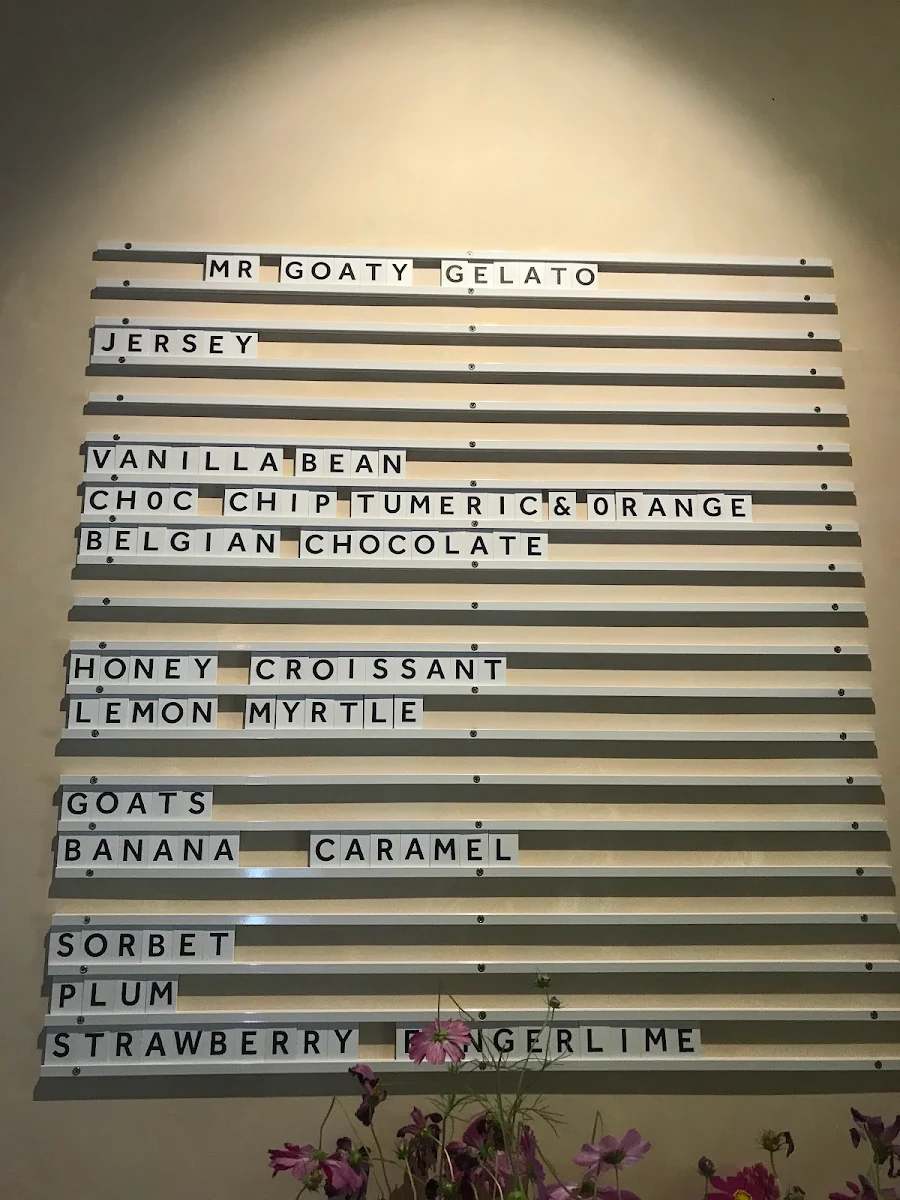 MR GOATY GELATO
JERSEY
VANILLA BEAN
CH0C CHIP TUMERIC & 0RANGE
BELGIAN CHOCOLATE
HONEY CROISSANT
LEMON MYRTLE
GOATS
BANANA CARAMEL
SORBET
PLUM
STRAWBERRY FINGERLIME